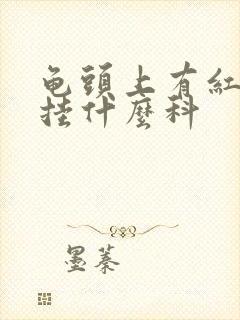 龟頭上有紅
挂什麼科
墨蓁